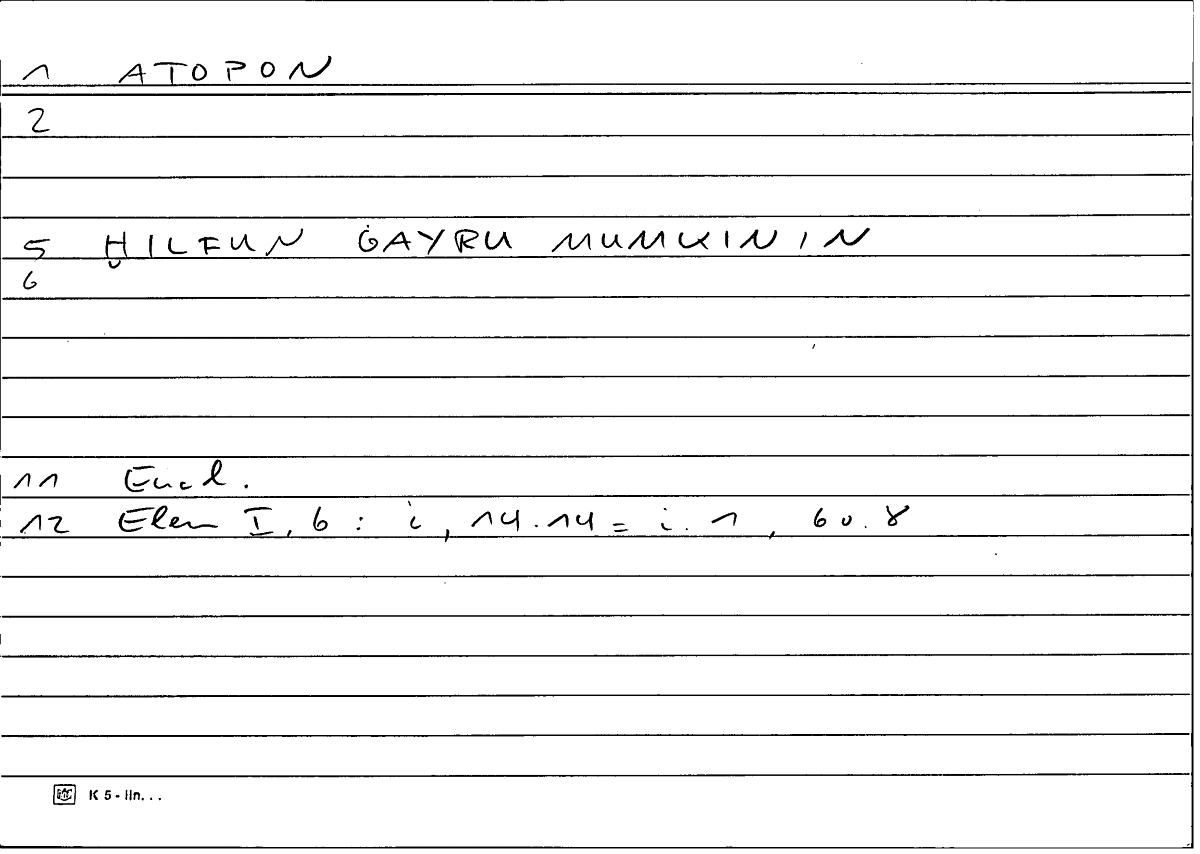 1 ATOPON
2
5 ḪILFUN ĠAYRU MUMKININ
6
11 Eucl.
12 Elem I, 6 : i, 14.14 = i. 1, 60.8
K 5 - lin...